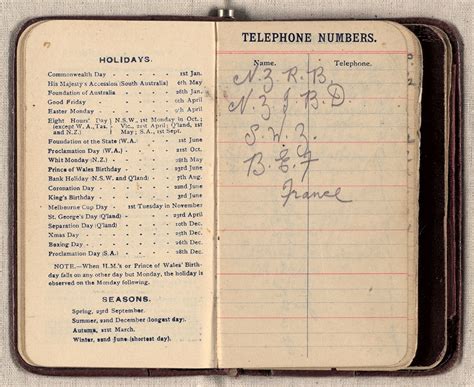 HOLIDAYS.
Commonwealth Day - - - 1st Jan.
His Majesty's Accession (South Australia) 6th May
Foundation of Australia - - 26th Jan.
Good Friday - - - - 6th April
Easter Monday - - - - 9th April
Eight Hours' Day (N.S.W., 1st Monday in Oct.;
(except W.A., Tas. Vic., 21st April; Q'land, 1st
and N.Z.) May; S.A., 1st Sept.
Foundation of the State (W.A.) - 1st June
Proclamation Day (W.A.) - - 21st Oct.
Whit Monday (N.Z.) - - - 28th May
Prince of Wales Birthday - - 23rd June
Bank Holiday (N.S.W. and Q'land) - 7th Aug.
Coronation Day - - - 22nd June
King's Birthday - - - 3rd June
Melbourne Cup Day - 1st Tuesday in November
St. George's Day (Q'land) - - 23rd April
Separation Day (Q'land) - - 10th Dec.
Xmas Day - - - - 25th Dec.
Boxing Day - - - - 26th Dec.
Proclamation Day (S.A.) - - 28th Dec.
NOTE.—When H.M.'s or Prince of Wales' Birth-
day falls on any other day but Monday, the holiday is
observed on the Monday following.
SEASONS.
Spring, 23rd September.
Summer, 22nd December (longest day).
Autumn, 21st March.
Winter, 22nd June (shortest day).
TELEPHONE NUMBERS.
Name. Telephone.
N.Z.R.B.
N.Z.I.B.D
S.W.Z.
B.E.F
France